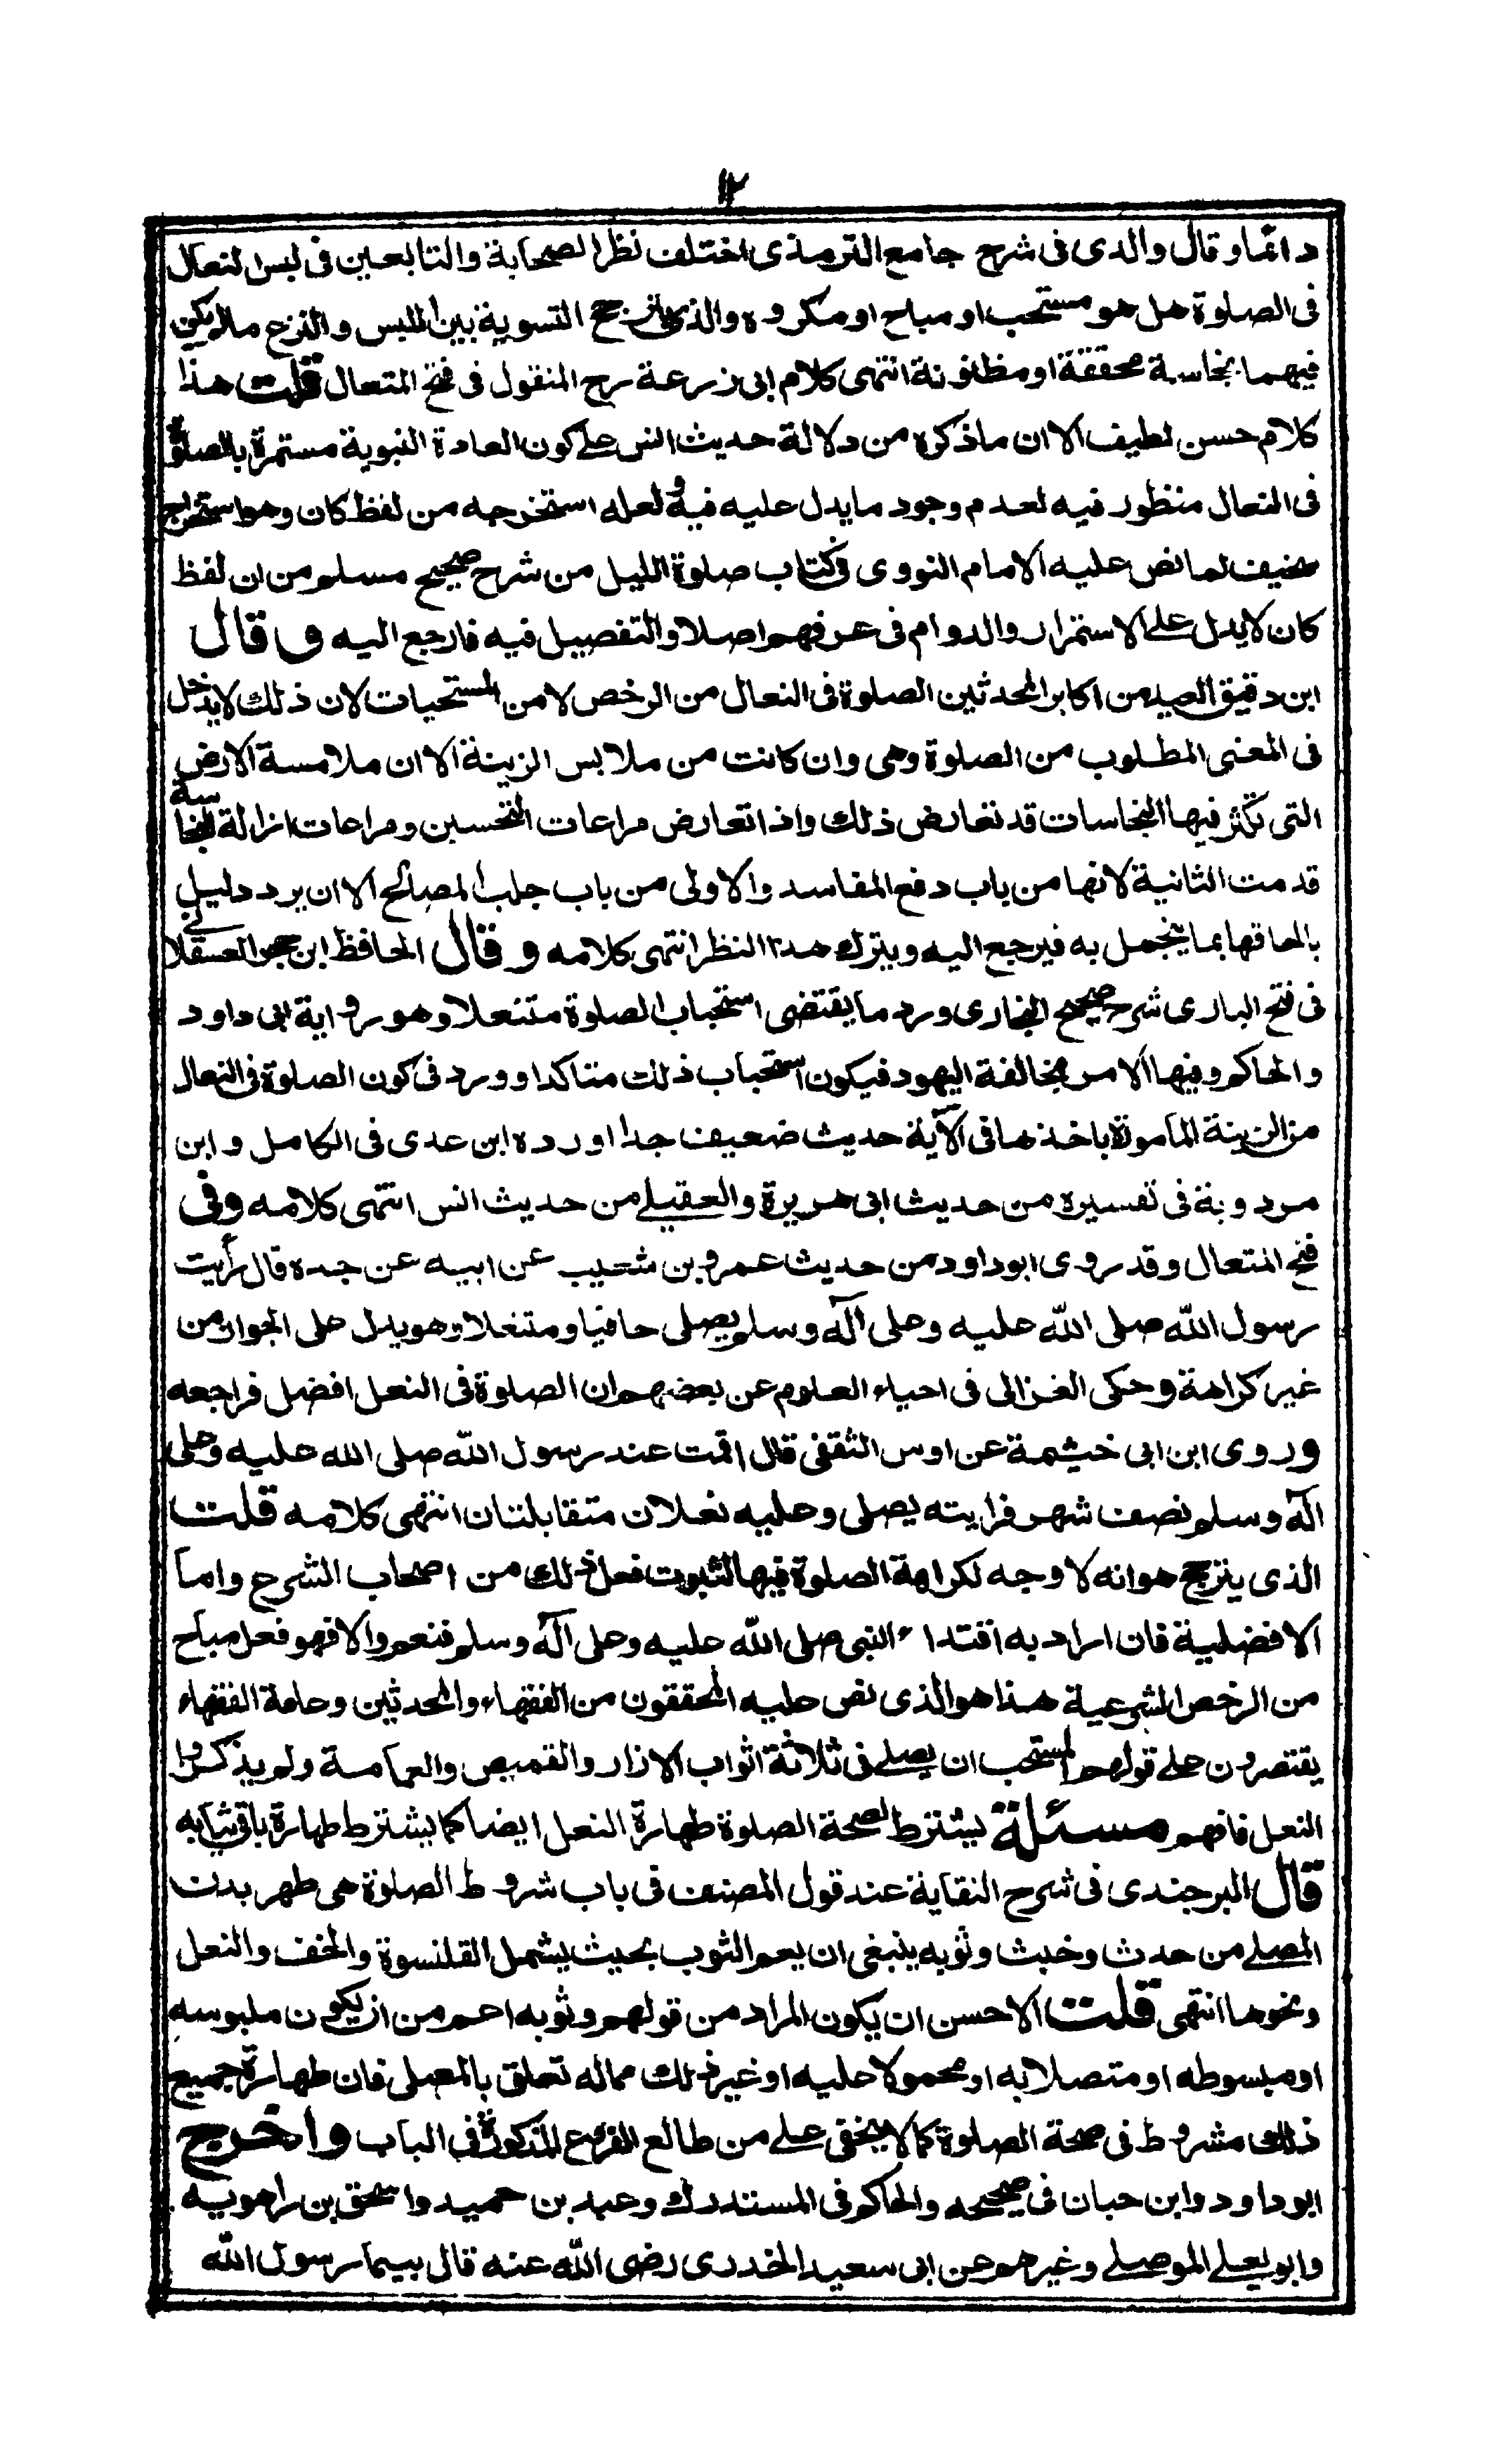 ١٢
دائما وقال والدى فى شرح جامع الترمذى اختلف نظر الصحابة والتابعين فى لبس لنعال
فى الصلوة هل هو مستحب او مباح او مكروه والذى يترجح التسوية بين اللبس والنزع مالم يكن
فيهما نجاسة محققة او مظنونة انتهى كلام ابى زرعة رح المنقول فى فتح المتعال قلت هذا
كلام حسن لطيف الا ان ما ذكره من دلالة حديث انس على كون العادة النبوية مستمرة بالصلوة
فى النعال منظور فيه لعدم وجود ما يدل عليه فيه ولعله استخرجه من لفظ كان وهو استخراج
سخيف لما نص عليه الامام النووى فى كتاب صلوة الليل من شرح صحيح مسلم من ان لفظ
كان لا يدل على الاستمرار والدوام فى عرفهم اصلا والتفصيل فيه فارجع اليه وقال
ابن دقيق العيد من اكابر المحدثين الصلوة فى النعال من الرخص لا من المستحبات لان ذلك لا يدخل
فى المعنى المطلوب من الصلوة وهى وان كانت من ملابس الزينة الا ان ملامسة الارض
التى تكثر فيها النجاسات قد تعارض ذلك واذا تعارض مراعات التحسين ومراعات ازالة النجاسة
قدمت الثانية لانها من باب دفع المفاسد والاولى من باب جلب المصالح الا ان يرد دليل
بالحاقها بما يتجمل به فيرجع اليه ويترك هذا النظر انتهى كلامه وقال الحافظ ابن حجر العسقلانى
فى فتح البارى شرح صحيح البخارى ورد ما يقتضى استحباب الصلوة متنعلا وهو رواية ابى داود
والحاكم وفيها الامر بمخالفة اليهود فيكون استحباب ذلك متاكدا وورد فى كون الصلوة فى النعال
من الزينة المامورة باخذها فى الآية حديث ضعيف جدا اورده ابن عدى فى الكامل وابن
مردوية فى تفسيره من حديث ابى هريرة والعقيلى من حديث انس انتهى كلامه وفى
فتح المتعال وقد روى ابوداود من حديث عمرو بن شعيب عن ابيه عن جده قال رأيت
رسول الله صلى الله عليه وعلى آله وسلم يصلى حافيا ومتنعلا وهو يدل على الجواز من
غير كراهة وحكى الغزالى فى احياء العلوم عن بعضهم ان الصلوة فى النعل افضل فراجعه
وروى ابن ابى خيثمة عن اوس الثقفى قال اقمت عند رسول الله صلى الله عليه وعلى
آله وسلم نصف شهر فرايته يصلى وعليه نعلان متقابلتان انتهى كلامه قلت
الذى يترجح هو انه لا وجه لكراهة الصلوة فيها لثبوت فعل ذلك من اصحاب الشرع واما
الافضلية فان اراد به اقتداء النبى صلى الله عليه وعلى آله وسلم فنعم والا فهو فعل مباح
من الرخص الشرعية هذا هو الذى نص عليه المحققون من الفقهاء والمحدثين وعامة الفقهاء
يقتصرون على قولهم المستحب ان يصلى فى ثلاثة اثواب الازار والقميص والعمامة ولم يذكروا
النعل فافهم مسئلة يشترط لصحة الصلوة طهارة النعل ايضا كما يشترط طهارة باقى ثيابه
قال البرجندى فى شرح النقاية عند قول المصنف فى باب شروط الصلوة هى طهر بدن
المصلى من حدث وخبث وثوبه ينبغى ان يعم الثوب بحيث يشمل القلنسوة والخف والنعل
ونحوها انتهى قلت الاحسن ان يكون المراد من قولهم وثوبه اعم من ان يكون ملبوسه
او مبسوطه او متصلا به او محمولا عليه او غير ذلك مماله تعلق بالمصلى فان طهارة جميع
ذلك مشروط فى صحة الصلوة كما لا يخفى على من طالع الفروع المذكورة فى الباب واخرج
ابوداود وابن حبان فى صحيحه والحاكم فى المستدرك وعبد بن حميد واسحق بن راهويه
وابويعلى الموصلى وغيرهم عن ابى سعيد الخدرى رضى الله عنه قال بينما رسول الله